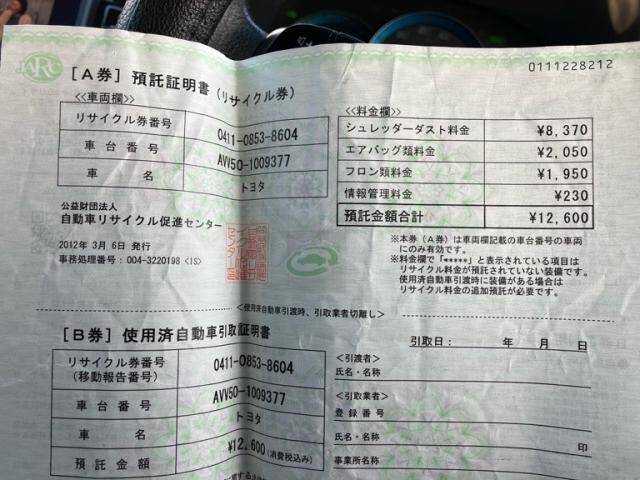 0111228212
[A券] 預託証明書 (リサイクル券)
≪車両欄≫
リサイクル券番号 0411-0853-8604
車台番号 AVV50-1009377
車名 トヨタ
公益財団法人
自動車リサイクル促進センター
2012年 3月 6日 発行
事務処理番号：004-3220198 <IS>
≪料金欄≫
シュレッダーダスト料金 ¥8,370
エアバッグ類料金 ¥2,050
フロン類料金 ¥1,950
情報管理料金 ¥230
預託金額合計 ¥12,600
※本券（A券）は車両欄記載の車台番号の車両
にのみ有効です。
※料金欄で「*****」と表示されている項目は
リサイクル料金が預託されていない装備です。
使用済自動車引渡時に装備がある場合は
リサイクル料金の追加預託が必要です。
<使用済自動車引渡時、引取業者切離し>
[B券] 使用済自動車引取証明書
リサイクル券番号
(移動報告番号) 0411-0853-8604
車台番号 AVV50-1009377
車名 トヨタ
預託金額 ¥12,600 (消費税込み)
引取日： 年 月 日
<引渡者>
氏名・名称
<引取業者>
登録番号
氏名・名称 印
事業所名称